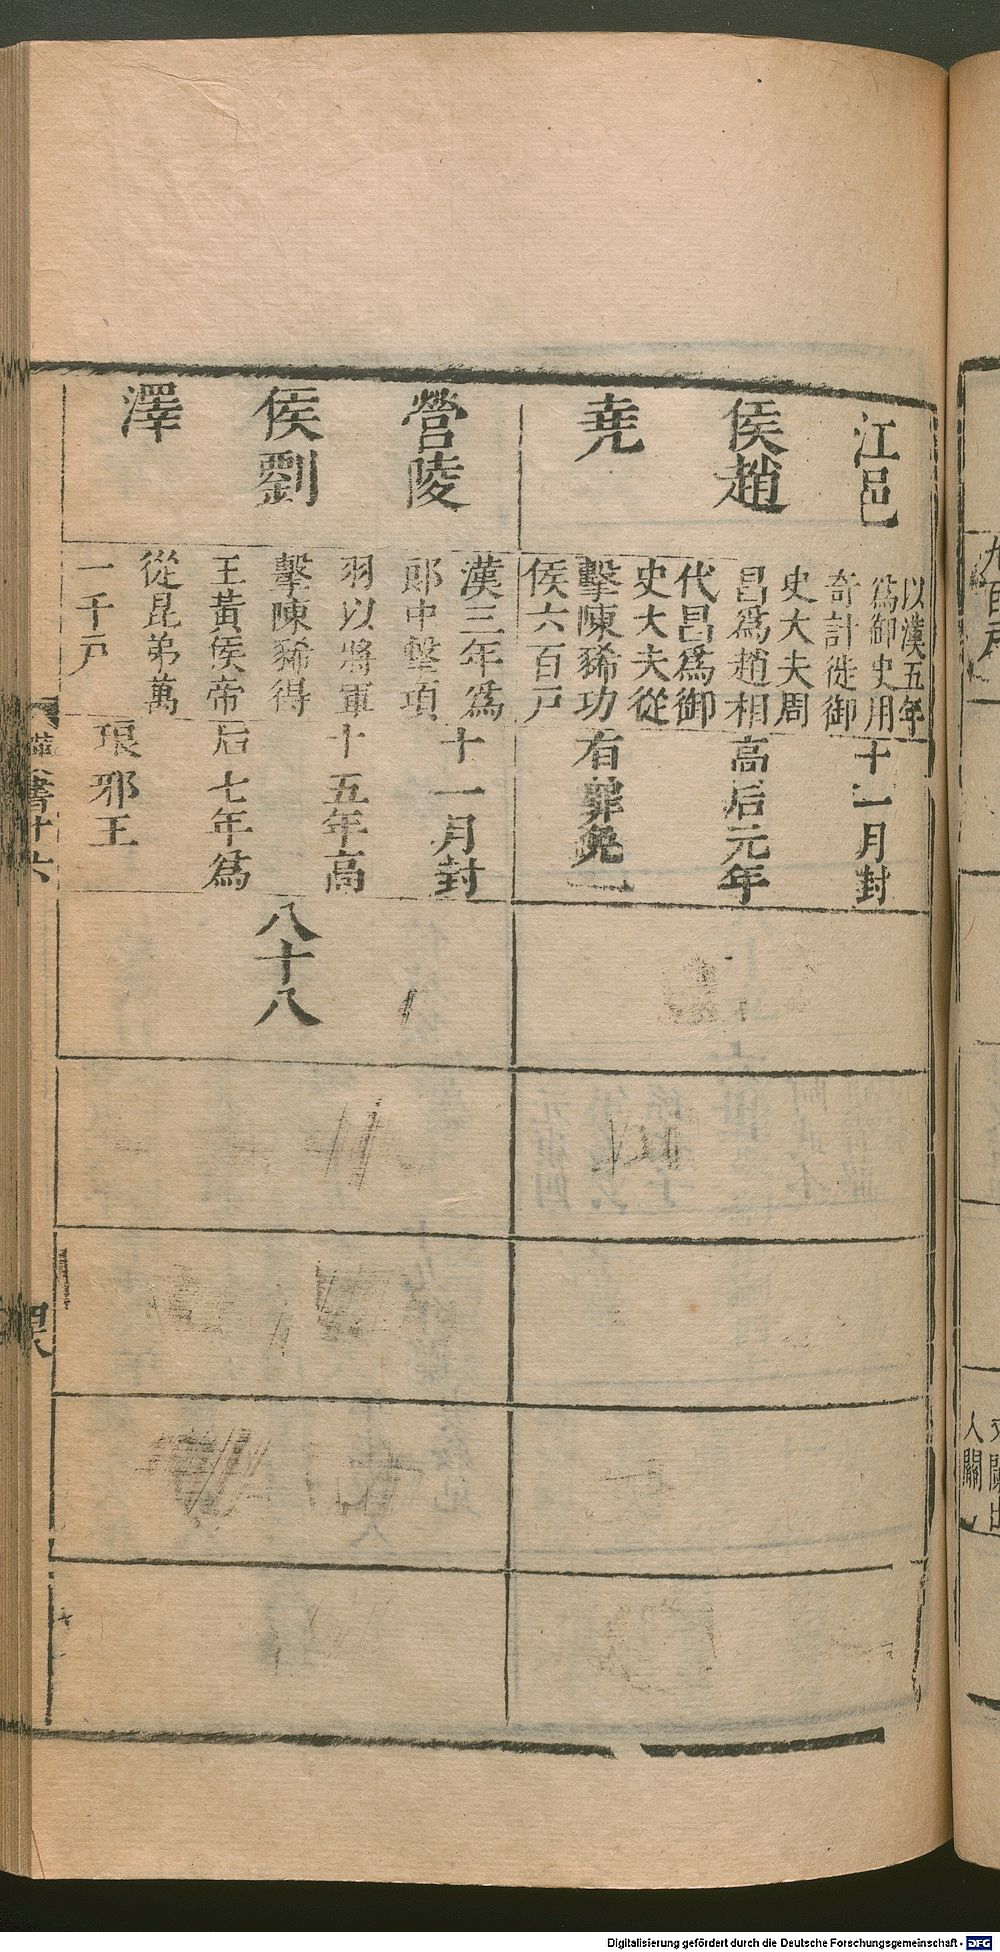 江邑
侯趙
堯
以漢五年
為御史用
奇計徙御
史大夫周
昌為趙相
代昌為御
史大夫從
擊陳豨功
侯六百戶
十一月封
高后元年
有罪免
營陵
侯劉
澤
漢三年為
郎中擊項
羽以將軍
擊陳豨得
王黃侯帝
從昆弟萬
一千戶
十一月封
十五年高
后七年為
琅邪王
八十八
人關
Digitalisierung gefördert durch die Deutsche Forschungsgemeinschaft - DFG